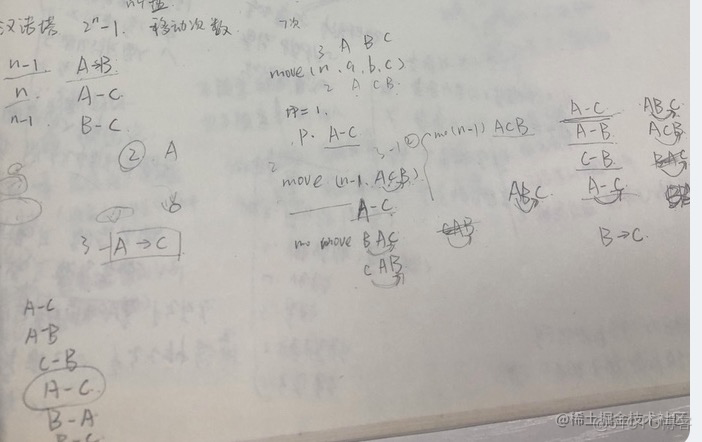 汉诺塔 2ⁿ-1. 移动次数 7次
n-1 A→B
n. A-C
n-1 B-C
② A
3 - A → C
A-C
A-B
C-B
A-C
B-A
B-C
3 A B C
move(n.a,b,c)
2 A C B
n=1.
P. A-C
move (n-1, ACB)
A-C
move BAC
CAB
3-1
mo(n-1) ACB
A-C ABC
A-B ACB
C-B
ABC A-C
B→C.
@稀土掘金技术社区